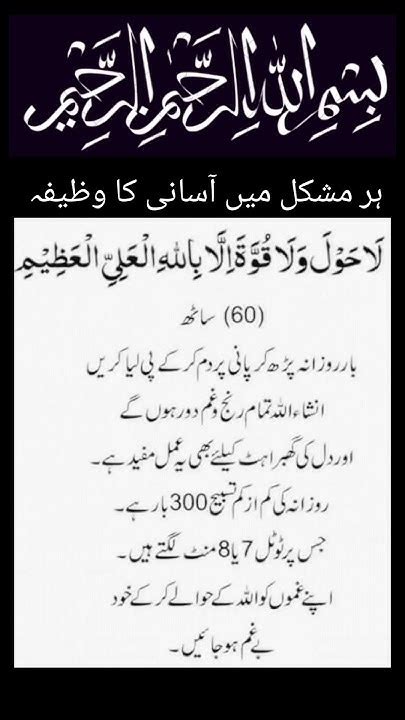 بِسْمِ اللهِ الرَّحْمٰنِ الرَّحِيْمِ
ہر مشکل میں آسانی کا وظیفہ
لَا حَوْلَ وَلَا قُوَّةَ اِلَّا بِاللهِ الْعَلِيِّ الْعَظِيْمِ
(60) ساٹھ
بار روزانہ پڑھ کر پانی پر دم کر کے پی لیا کریں
انشاء اللہ تمام رنج و غم دور ہوں گے
اور دل کی گھبراہٹ کیلئے بھی یہ عمل مفید ہے۔
روزانہ کی کم از کم تسبیح 300 بار ہے۔
جس پر ٹوٹل 7 یا 8 منٹ لگتے ہیں۔
اپنے غموں کو اللہ کے حوالے کر کے خود
بے غم ہو جائیں۔